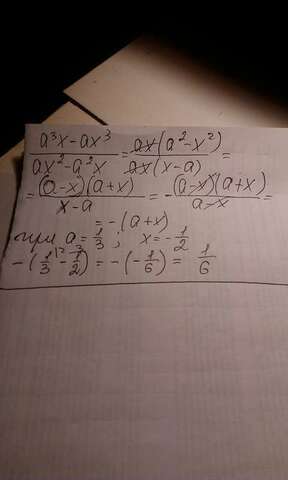 a³x-ax³/ax²-a²x = ax(a²-x²)/ax(x-a) =
= (a-x)(a+x)/x-a = -(a-x)(a+x)/a-x =
= -(a+x)
при a = 1/3; x = -1/2
-(1/3 - 1/2) = -(-1/6) = 1/6